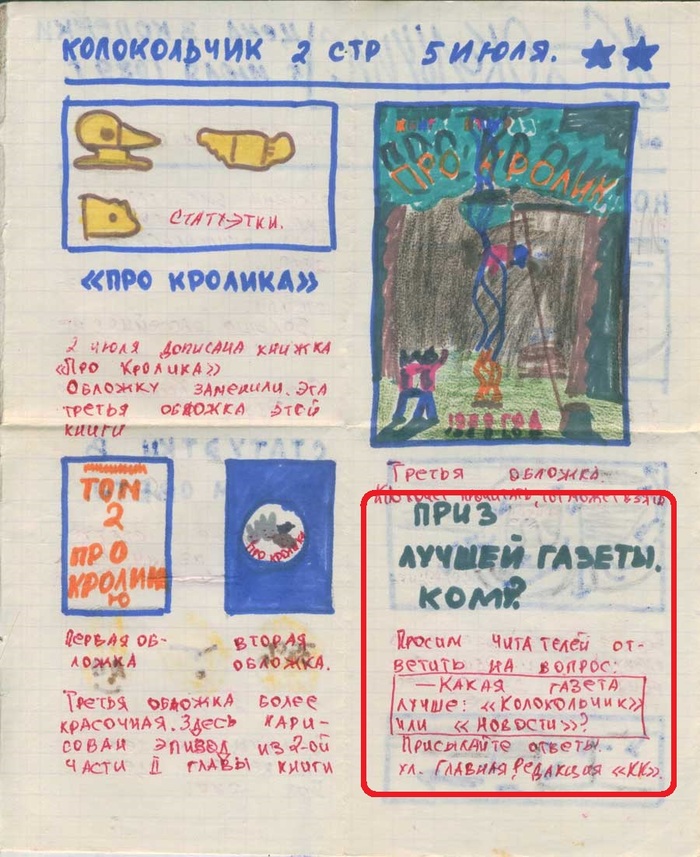 КОЛОКОЛЬЧИК 2 СТР 5 ИЮЛЯ.
СТАТУЭТКИ.
«ПРО КРОЛИКА»
2 ИЮЛЯ ДОПИСАНА КНИЖКА
«ПРО КРОЛИКА»
ОБЛОЖКУ ЗАМЕНИЛИ. ЭТА
ТРЕТЬЯ ОБЛОЖКА ЭТОЙ
КНИГИ
ТОМ
2
ПРО
КРОЛИК
Ю
ПРО КРОЛИКА
ПЕРВАЯ ОБ-
ЛОЖКА
ВТОРАЯ
ОБЛОЖКА.
ТРЕТЬЯ ОБЛОЖКА БОЛЕЕ
КРАСОЧНАЯ. ЗДЕСЬ НАРИ-
СОВАН ЭПИЗОД ИЗ 2-ОЙ
ЧАСТИ II ГЛАВЫ КНИГИ
ПРО КРОЛИК
ГОД
ТРЕТЬЯ ОБЛОЖКА.
КТО ХОЧЕТ ПРОЧИТАТЬ, ТОТ МОЖЕТ ВЗЯТЬ
ПРИЗ
ЛУЧШЕЙ ГАЗЕТЫ.
КОМУ?
ПРОСИМ ЧИТАТЕЛЕЙ ОТ-
ВЕТИТЬ НА ВОПРОС:
—КАКАЯ ГАЗЕТА
ЛУЧШЕ: «КОЛОКОЛЬЧИК»
ИЛИ «НОВОСТИ»?
ПРИСЫЛАЙТЕ ОТВЕТЫ
УЛ. ГЛАВНАЯ, РЕДАКЦИЯ «КК».